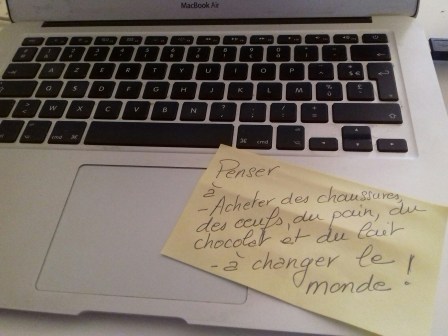 MacBook Air
Penser
à
-Acheter des chaussures,
des œufs, du pain, du
chocolat et du lait
-à changer le
monde !